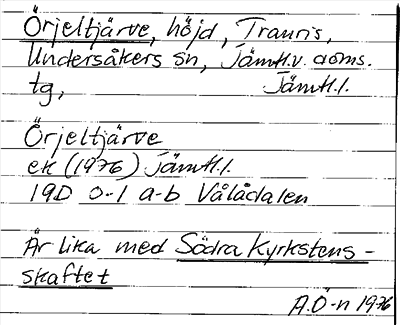 Örjeltjärve, höjd, Tranris,
Undersåkers sn, Jämtl.v. doms.
tg, Jämtl.l.
Örjeltjärve
ek (1976) Jämtl.l.
19D 0-1 a-b Vålådalen
Är lika med Södra Kyrkstens-
skaftet
A.Ö-n 1976